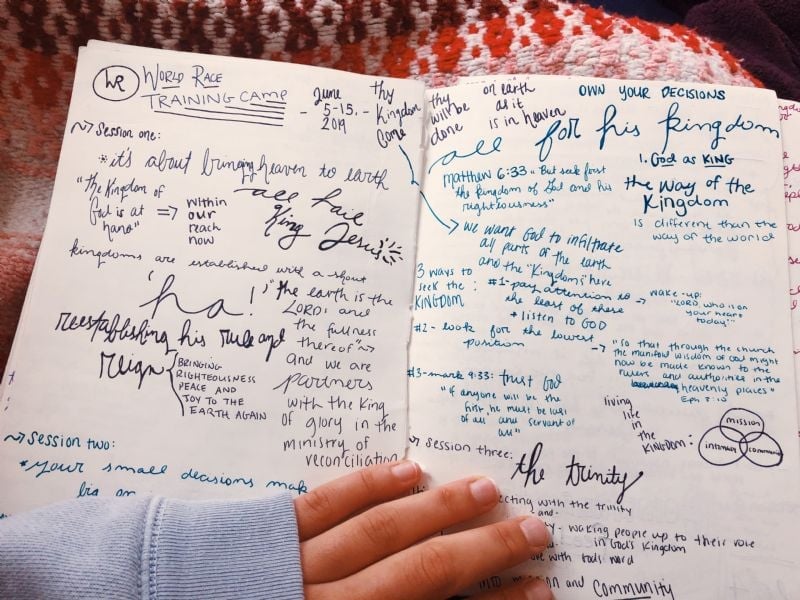 WR WORLD RACE
TRAINING CAMP
June
- 5-15, -
2019
thy
Kingdom
Come
~> Session one:
*it's about bringing heaven to earth
"The Kingdom of
God is at
hand"
=> within
our
reach
now
all hail
King Jesus
kingdoms are established with a shout
'ha!'
reestablishing his rule and
reign
BRINGING
RIGHTEOUSNESS
PEACE AND
JOY TO THE
EARTH AGAIN
"the earth is the
LORD's and
the fullness
thereof" ~>
and we are
partners
with the King
of glory in the
ministry of
reconciliation
~> Session two:
*your small decisions make
big
thy
will be
done
on earth
as it
is in heaven
OWN YOUR DECISIONS
all for his kingdom
matthew 6:33 "But seek first
the kingdom of God and his
righteousness"
1. God as KING
the way of the
Kingdom
is different than the
way of the world
→ we want God to infiltrate
all parts of the earth
and the "kingdoms" here
3 ways to
seek the :
KINGDOM
#1- pay attention to
the least of these
+ listen to GOD
→ wake-up!
"LORD, who is on
your heart
today"
#2- look for the lowest
position
→ "so that through the church
the manifold wisdom of God might
now be made known to the
rulers and authorities in the
heavenly places"
Eph 3:10
#3- mark 9:33: trust God
"if anyone will be the
first, he must be last
of all and servant of
all"
living
life
in
the
KINGDOM:
mission
intimacy
community
~> session three:
the trinity
cting with the trinity
-and-
waking people up to their role
in God's Kingdom
with God's word
into and community